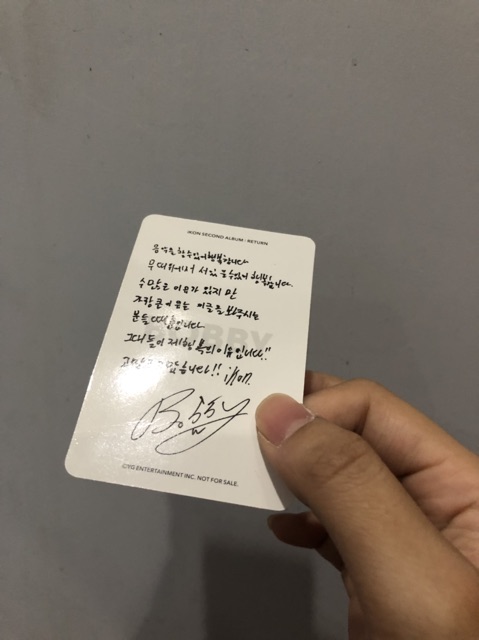 iKON SECOND ALBUM : RETURN
음악을 할수있어 행복합니다
무대위에서 서있을수있어 행복합니다
수많은 이유가 있지만
가장 큰 이유는 이글을 봐주시는
분들 때문입니다
그대들이 제 행복의 이유입니다!!
고맙고 고맙습니다!! iKON.
BOBBY
Bobby
©YG ENTERTAINMENT INC. NOT FOR SALE.